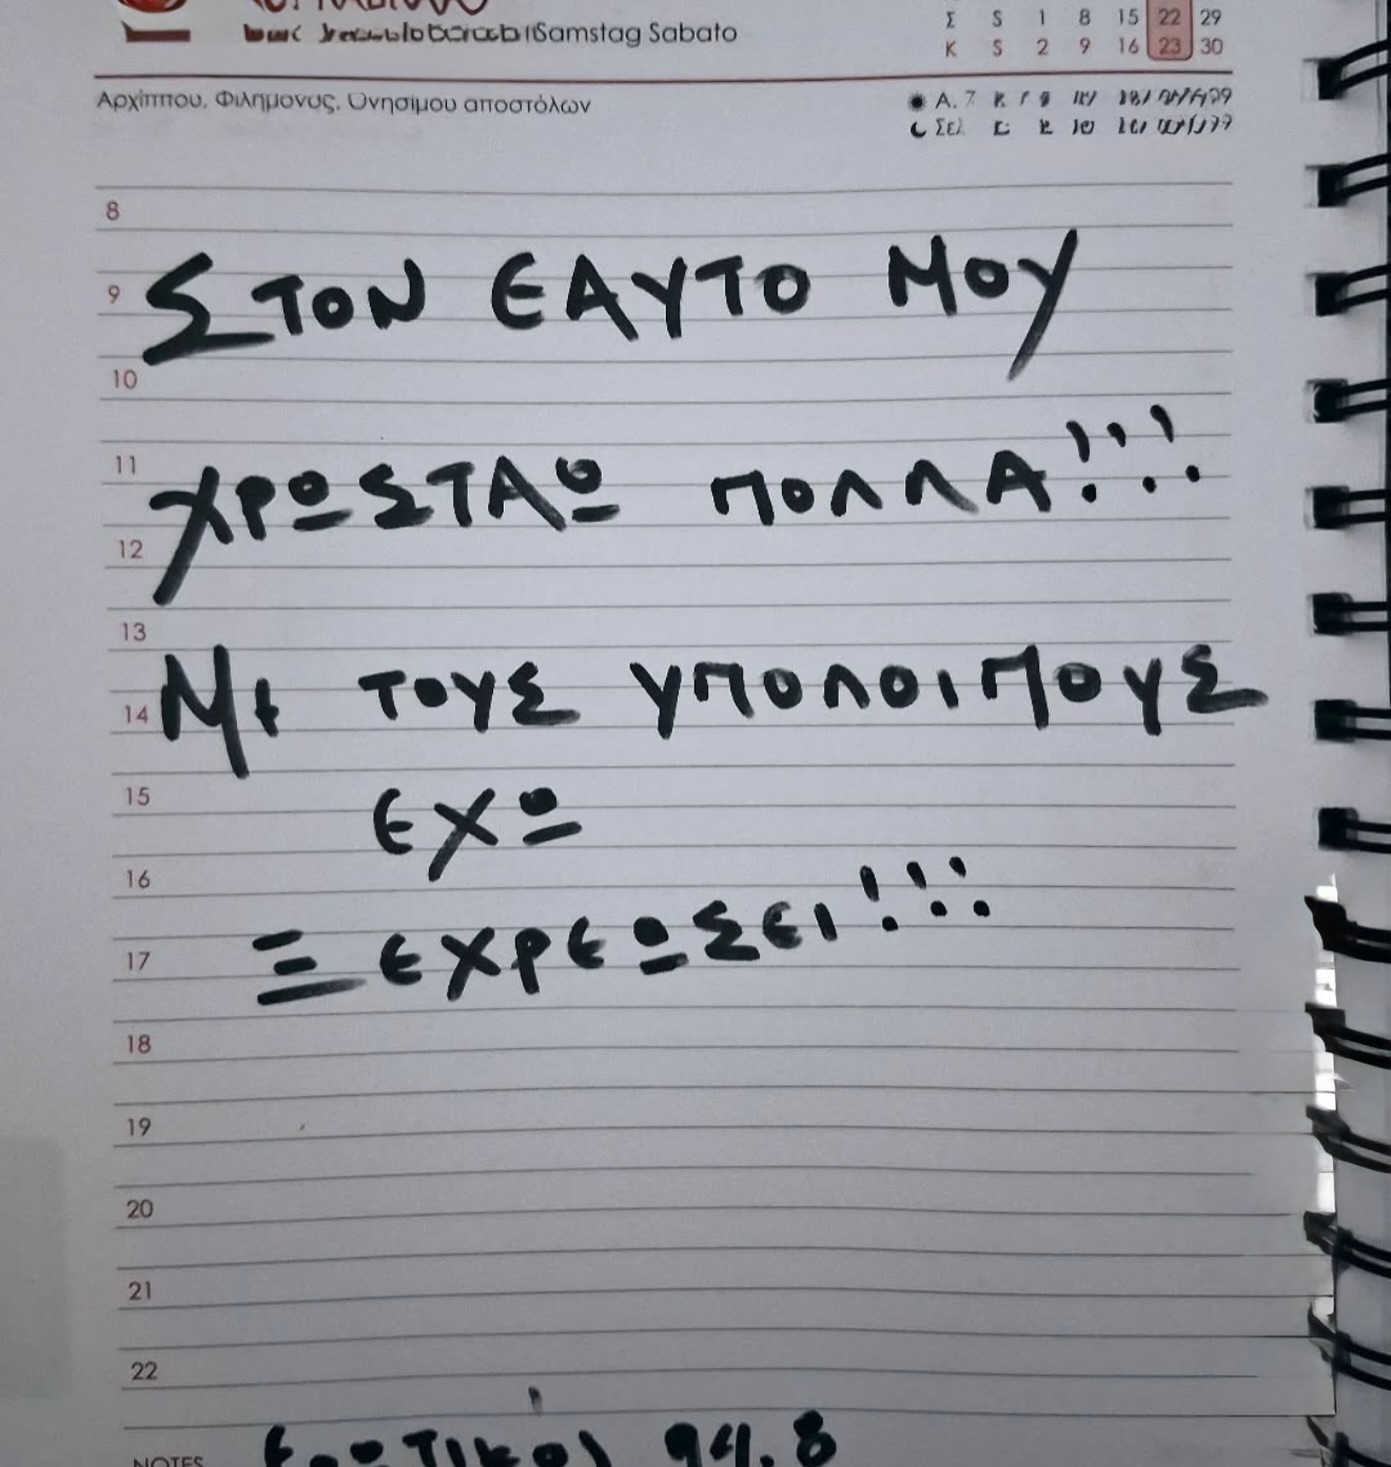 Samstag Sabato
Σ S 1 8 15 22 29
Κ S 2 9 16 23 30
Αρχίππου, Φιλήμονος, Ονησίμου αποστόλων
8
9 ΣΤΟΝ ΕΑΥΤΟ ΜΟΥ
10
11 ΧΡΩΣΤΑΩ ΠΟΛΛΑ!!!
12
13
14 Με ΤΟΥΣ ΥΠΟΛΟΙΠΟΥΣ
15 ΕΧΩ
16
17 ΞΕΧΡΕΩΣΕΙ!!!
18
19
20
21
22
NOTES 94.8